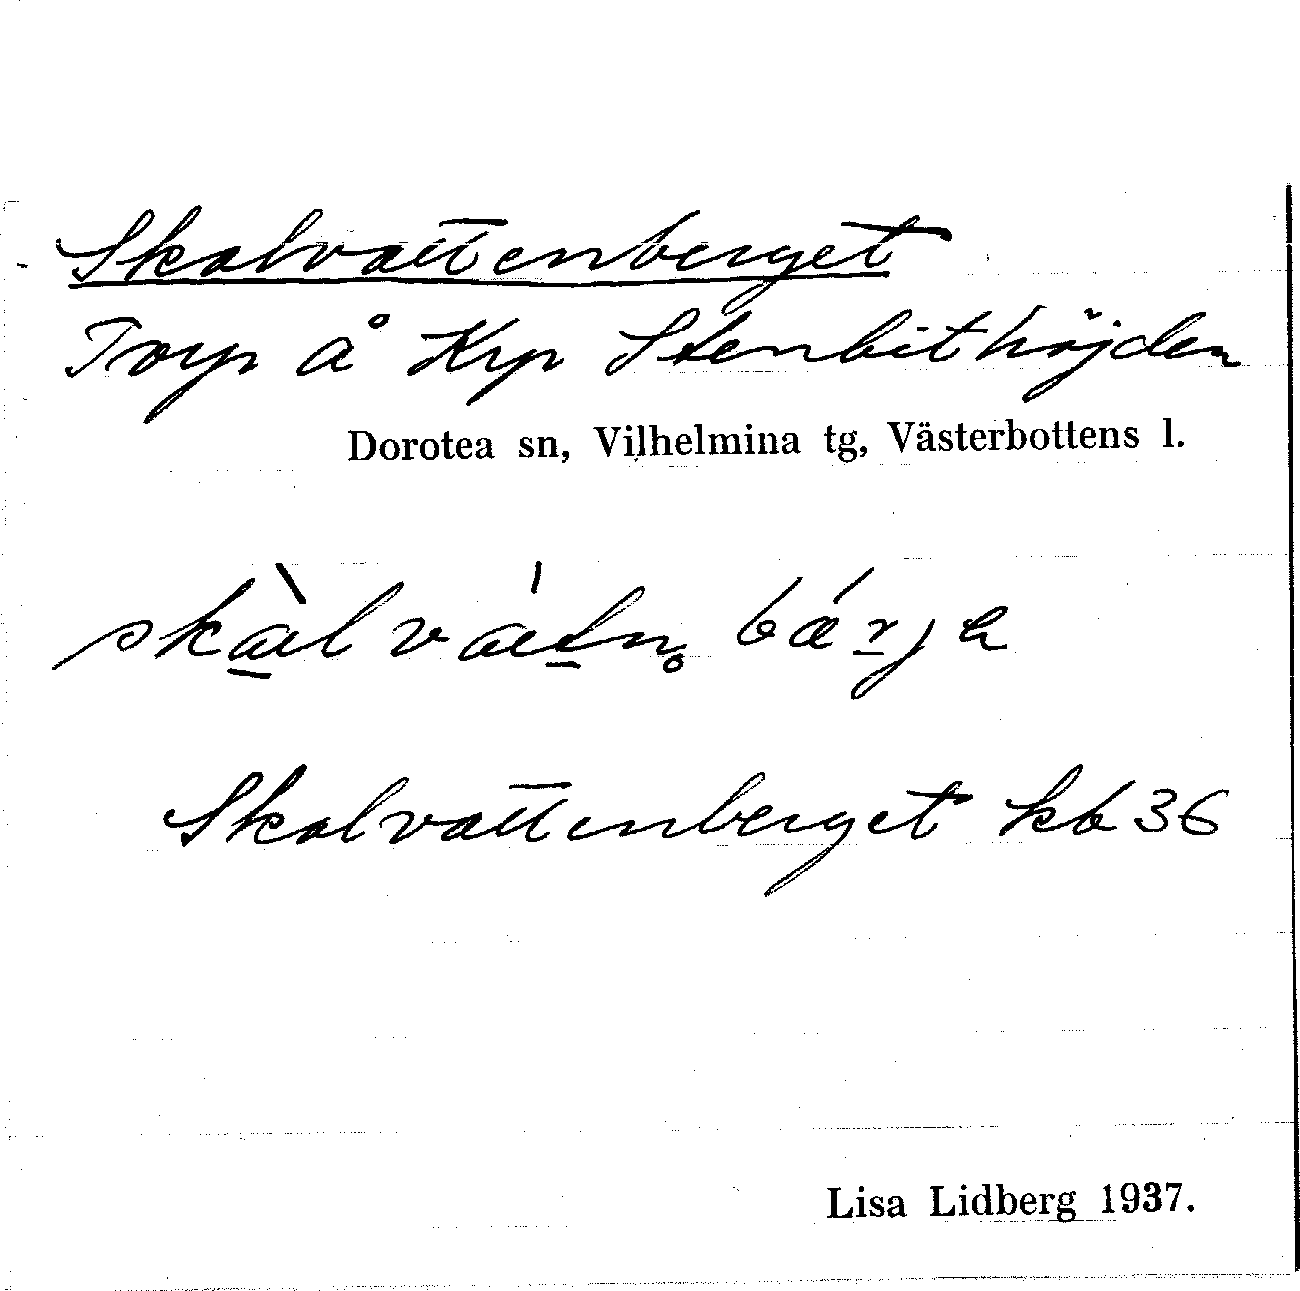 Skalvattenberget
Torp å Krp Stenbithöjden
Dorotea sn, Vilhelmina tg, Västerbottens l.
skàlvátn̥ bǽrja
Skalvattenberget kb 36
Lisa Lidberg 1937.